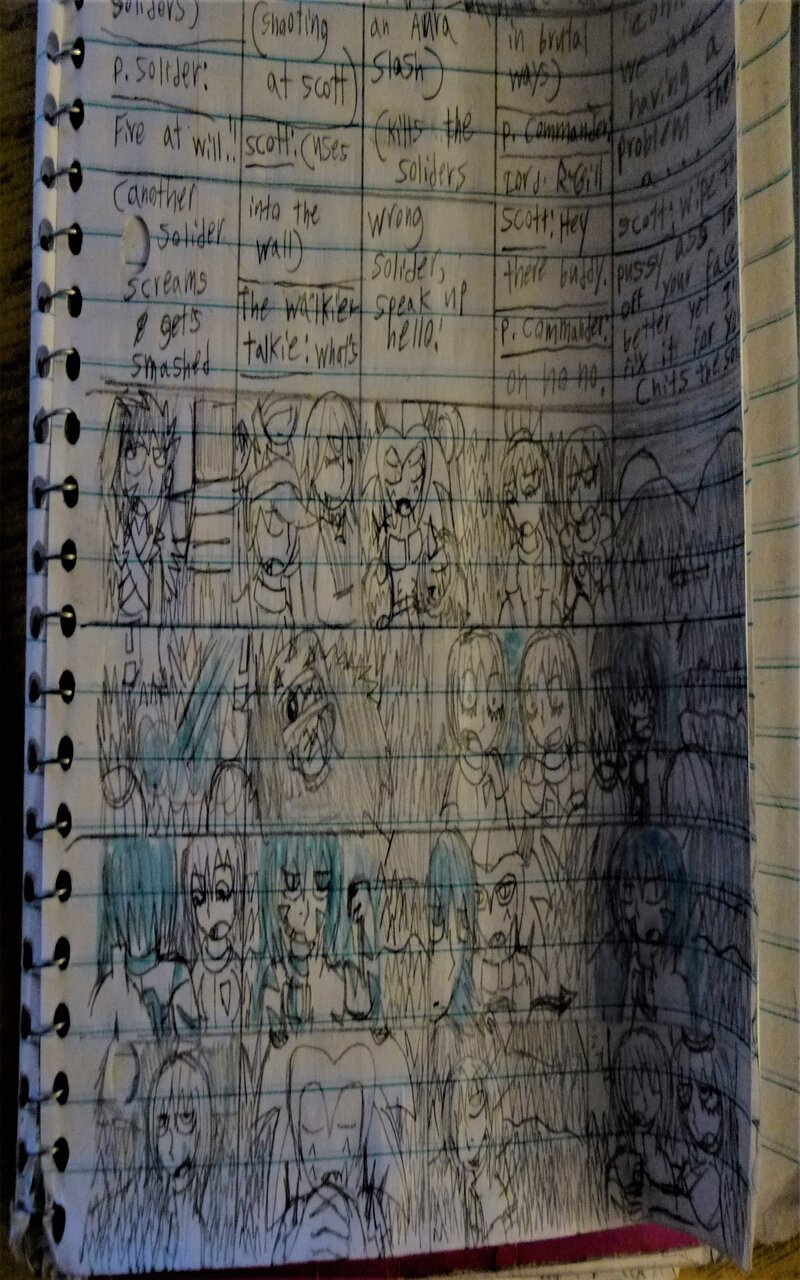 soliders)
P. Solider:
Fire at will!!
(another
solider
screams
& gets
smashed
(shooting
at scott)
scott: (uses
into the
wall)
the walkier
talkie: what's
an Aura
slash)
(kills the
soliders
wrong
solider,
speak up
hello!
in brutal
ways)
P. Commander
Lord:
Scott: Hey
there buddy.
P. Commander:
oh no no,
we are
having a
problem
a....
scott: wipe
pussy ass
off your face
better yet
fix it for
(hits the